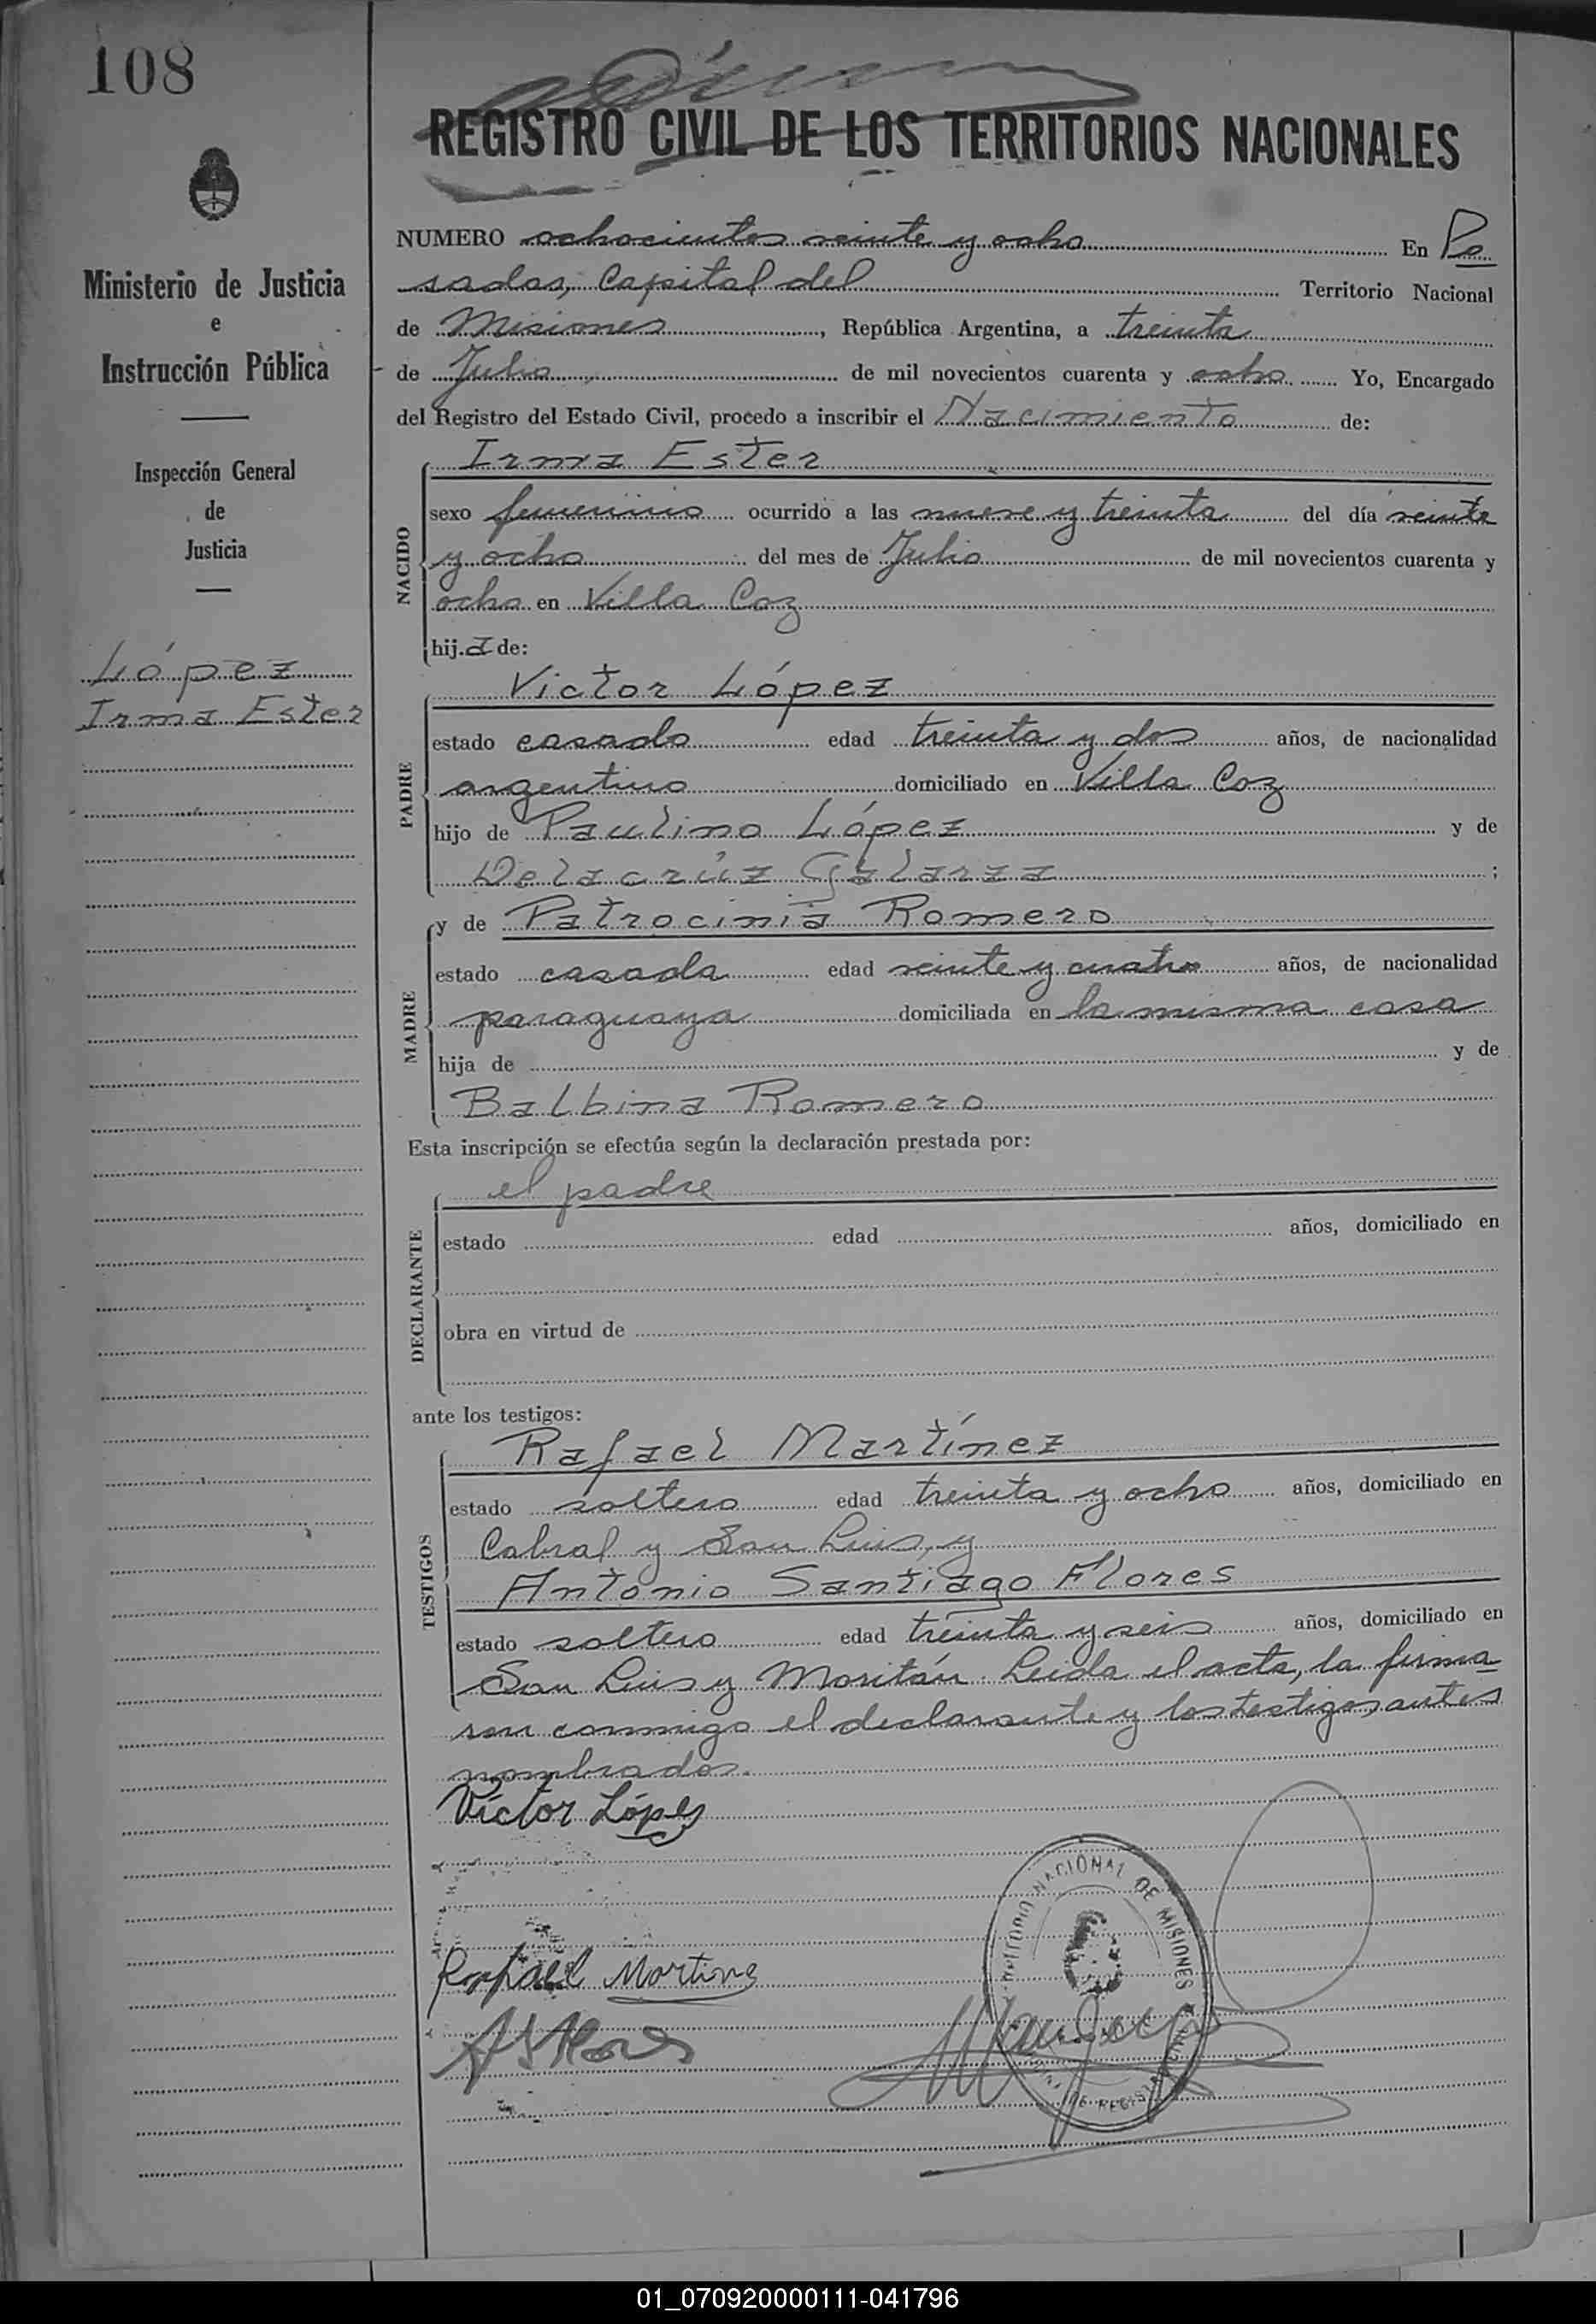 108
REGISTRO CIVIL DE LOS TERRITORIOS NACIONALES
Ministerio de Justicia
e
Instrucción Pública
Inspección General
de
Justicia
López
Irma Ester
NUMERO ochocientos veinte y ocho En Po
sadas, Capital del Territorio Nacional
de Misiones, República Argentina, a treinta
de Julio de mil novecientos cuarenta y ocho Yo, Encargado
del Registro del Estado Civil, procedo a inscribir el Nacimiento de:
NACIDO
Irma Ester
sexo femenino ocurrido a las nueve y treinta del día veinte
y ocho del mes de Julio de mil novecientos cuarenta y
ocho en Villa Coz
hija de:
PADRE
Victor López
estado casado edad treinta y dos años, de nacionalidad
argentino domiciliado en Villa Coz
hijo de Paulino López y de
Delacrúz Galarza;
MADRE
y de Patrocinia Romero
estado casada edad veinte y cuatro años, de nacionalidad
paraguaya domiciliada en la misma casa
hija de y de
Balbina Romero
Esta inscripción se efectúa según la declaración prestada por:
DECLARANTE
el padre
estado edad años, domiciliado en
obra en virtud de
ante los testigos:
TESTIGOS
Rafael Martínez
estado soltero edad treinta y ocho años, domiciliado en
Cabral y San Luis, y
Antonio Santiago Flores
estado soltero edad treinta y seis años, domiciliado en
San Luis y Moritán. Leída el acta, la firma
ron conmigo el declarante y los testigos antes
nombrados.
Víctor López
Raphael Martine
A S Flores
TERRITORIO NACIONAL DE MISIONES
DE REGISTRO
01_070920000111-041796